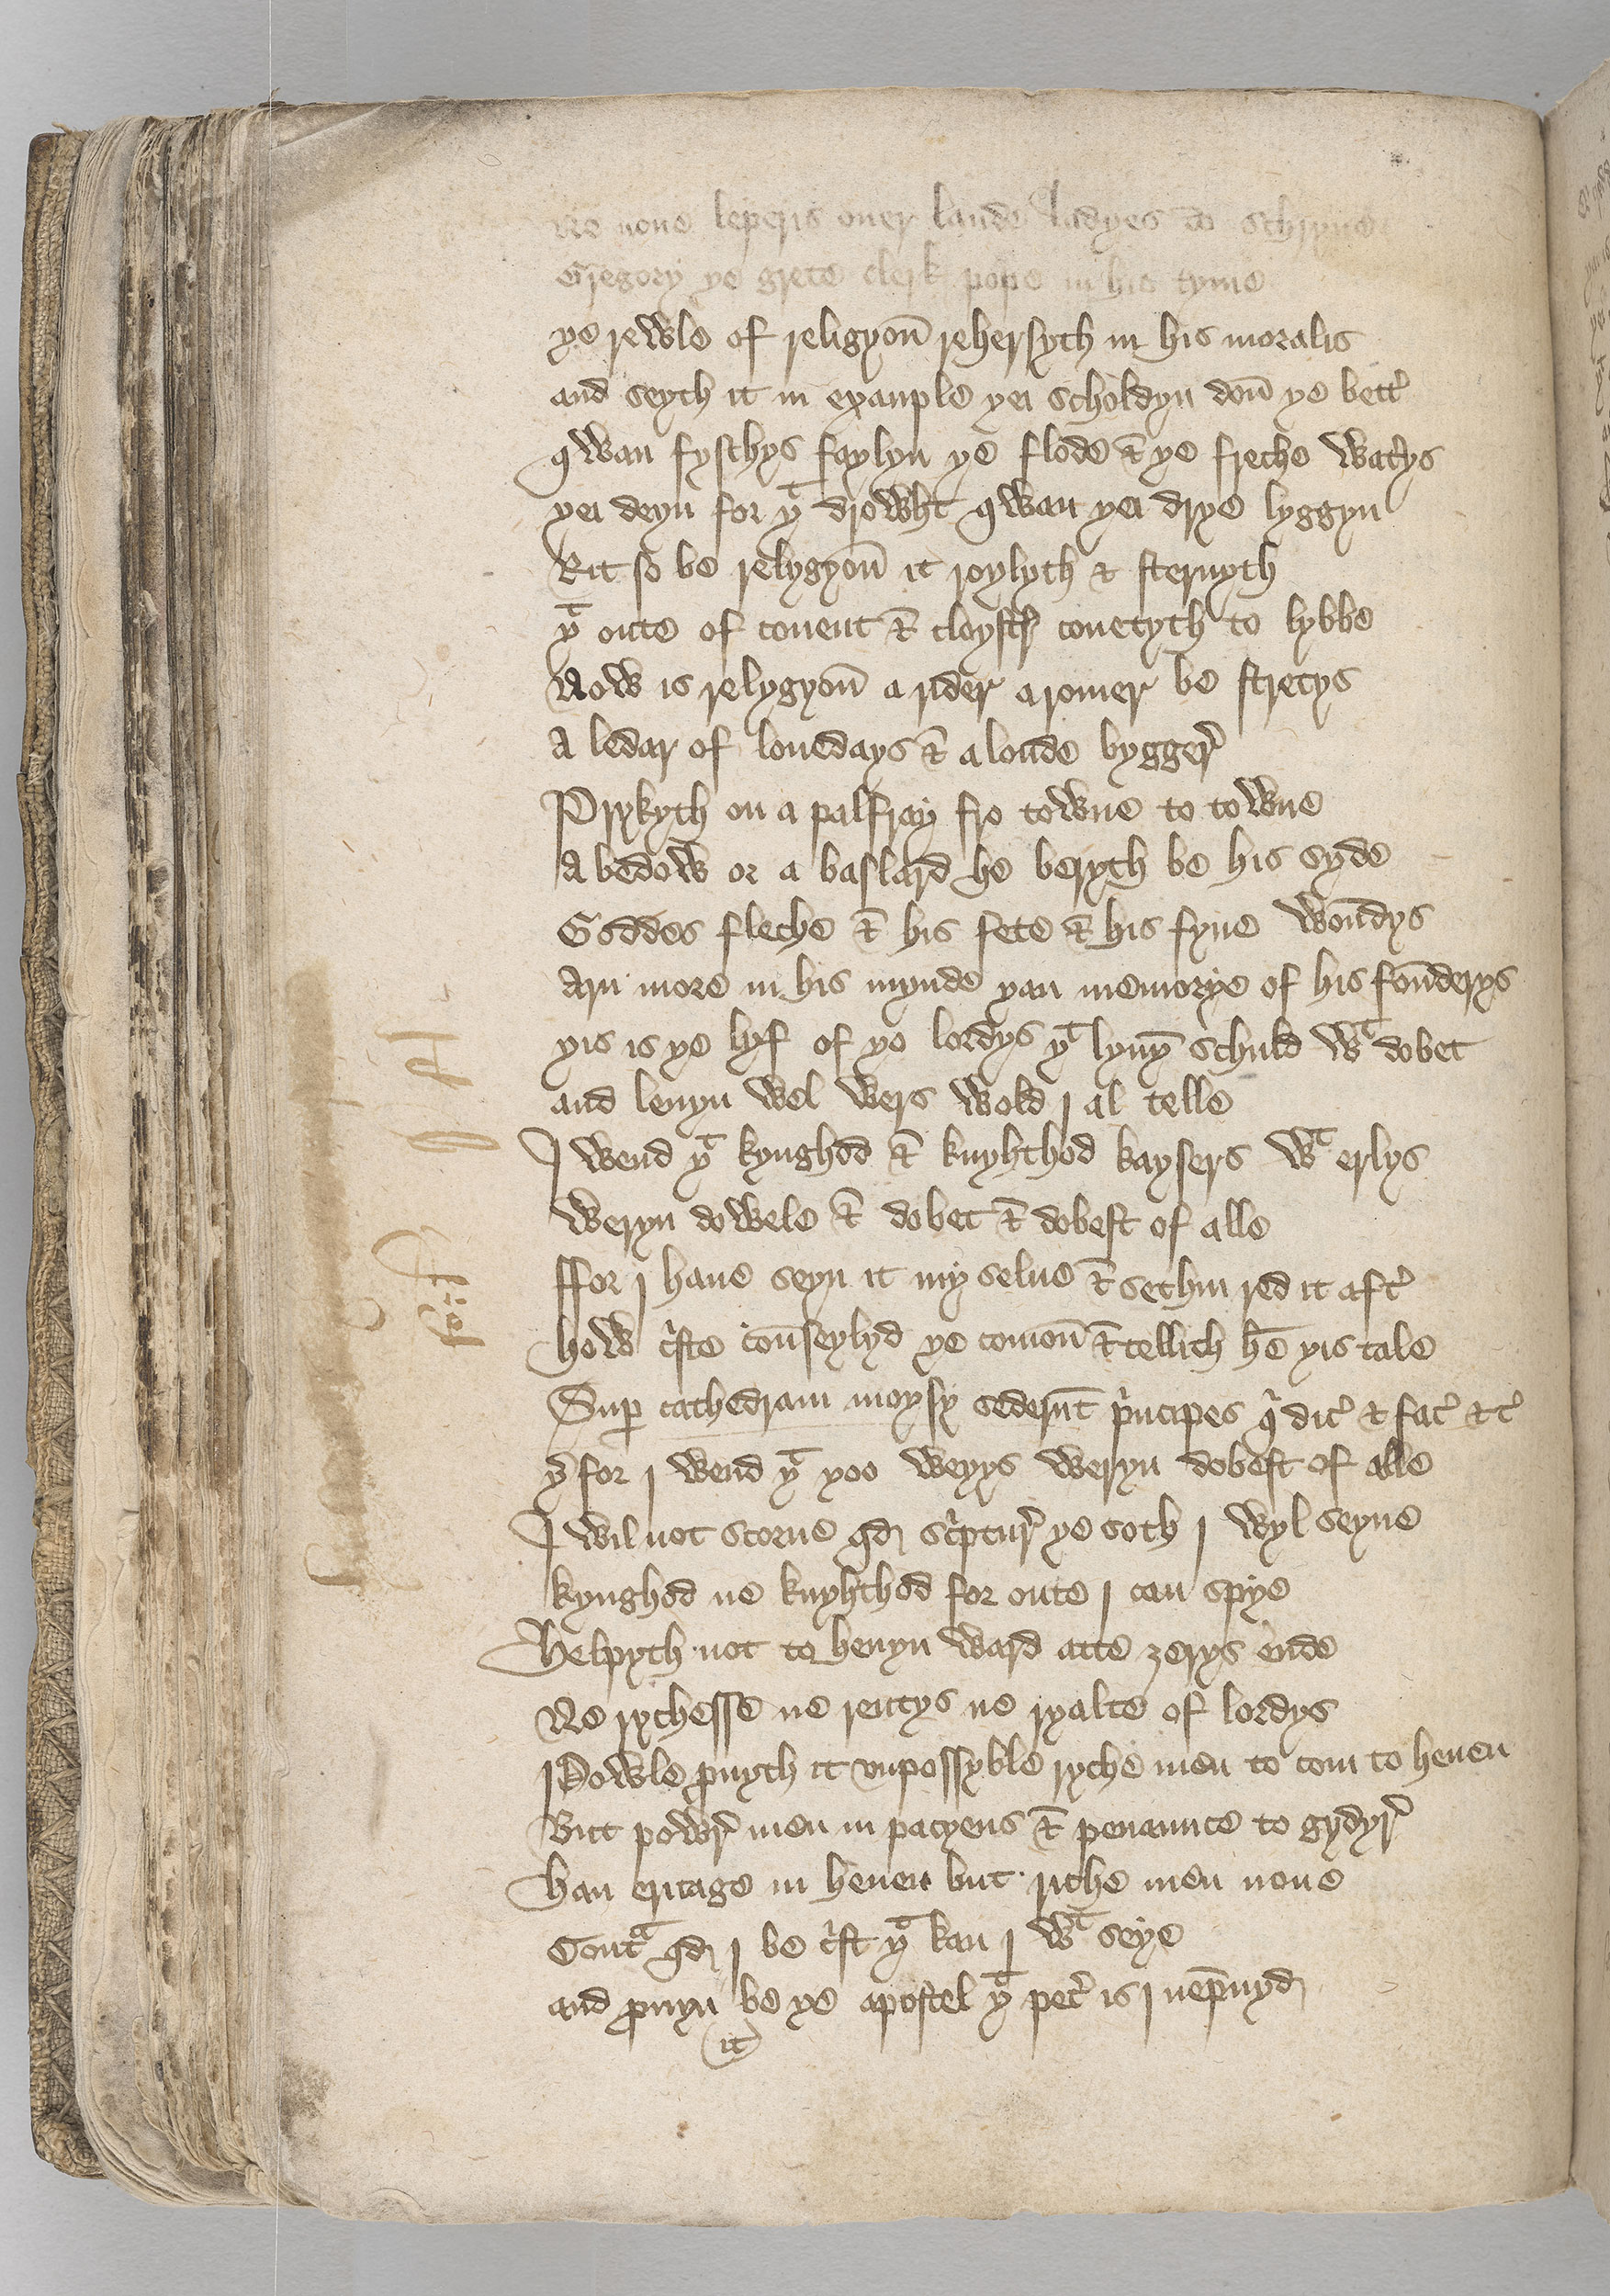 Ne none leperis ouer lande ladyes to schryue
Gregory ye grete clerk pope in his tyme
ye rewle of religyon̄ rehersyth in his moralis
and seyth it in exanple yei scholdyn don̄ ye bett͛
qwan fyschys faylyn ye flode & ye freche wat͛ys
yei deyn for yͭ drowht qwan yei drye lyggyn
Rit so be relygyon̄ it roylyth & steruyth
yͭ oute of couent & cloystr̛ couetyth to lybbe
Now is relygyon̄ a rider a romer be stretys
A ledar of louedays & a londe bygger͛
Prykyth on a palfray fro towne to towne
A bedow or a baslard he beryth be his syde
Goddes fleche & his fete & his fyue won̄dys
Arn more in his mynde yan memorye of his fon̄derys
yis is ye lyf of yo lordys yͭ lyuyn̄ schuld wͭ dobet
and leuyn wel wers wold j al telle
I wend yͭ kynghod & knyhthod kaysers wͭ erlys
Weryn dowele & dobet & dobest of alle
ffor j haue seyn it my selue & sethin red it aft͛
how c͛ste con̄seylyd ye comon̄ & tellith hē yis tale
Sup̱ cathedram moysy sederūt p͛ncipes q͛ dic͛ & fac͛ &c͛
y͛for j wend yͭ yoo weyys weryn dobest of alle
I wil not scorne qd̛ sc͛ptur͛ ye soth j wyl seyne
kynghod ne knyhthod for oute j can spye
Helpyth not to heuyn ward atte ȝerys ende
Ne rychesse ne rentys ne ryalte of lordys
Powle ꝓuyth it vnpossyble ryche men to com to heuen
But powr͛ men in pacyens & penaunce to gydyr͛
han eritage in heuen but riche men none
Contͣ qd̛ j be c͛st yͭ kan j wͭ seye
and ꝓuyn be ye apostel yͭ pet͛ is j nep̄nyd̛
it